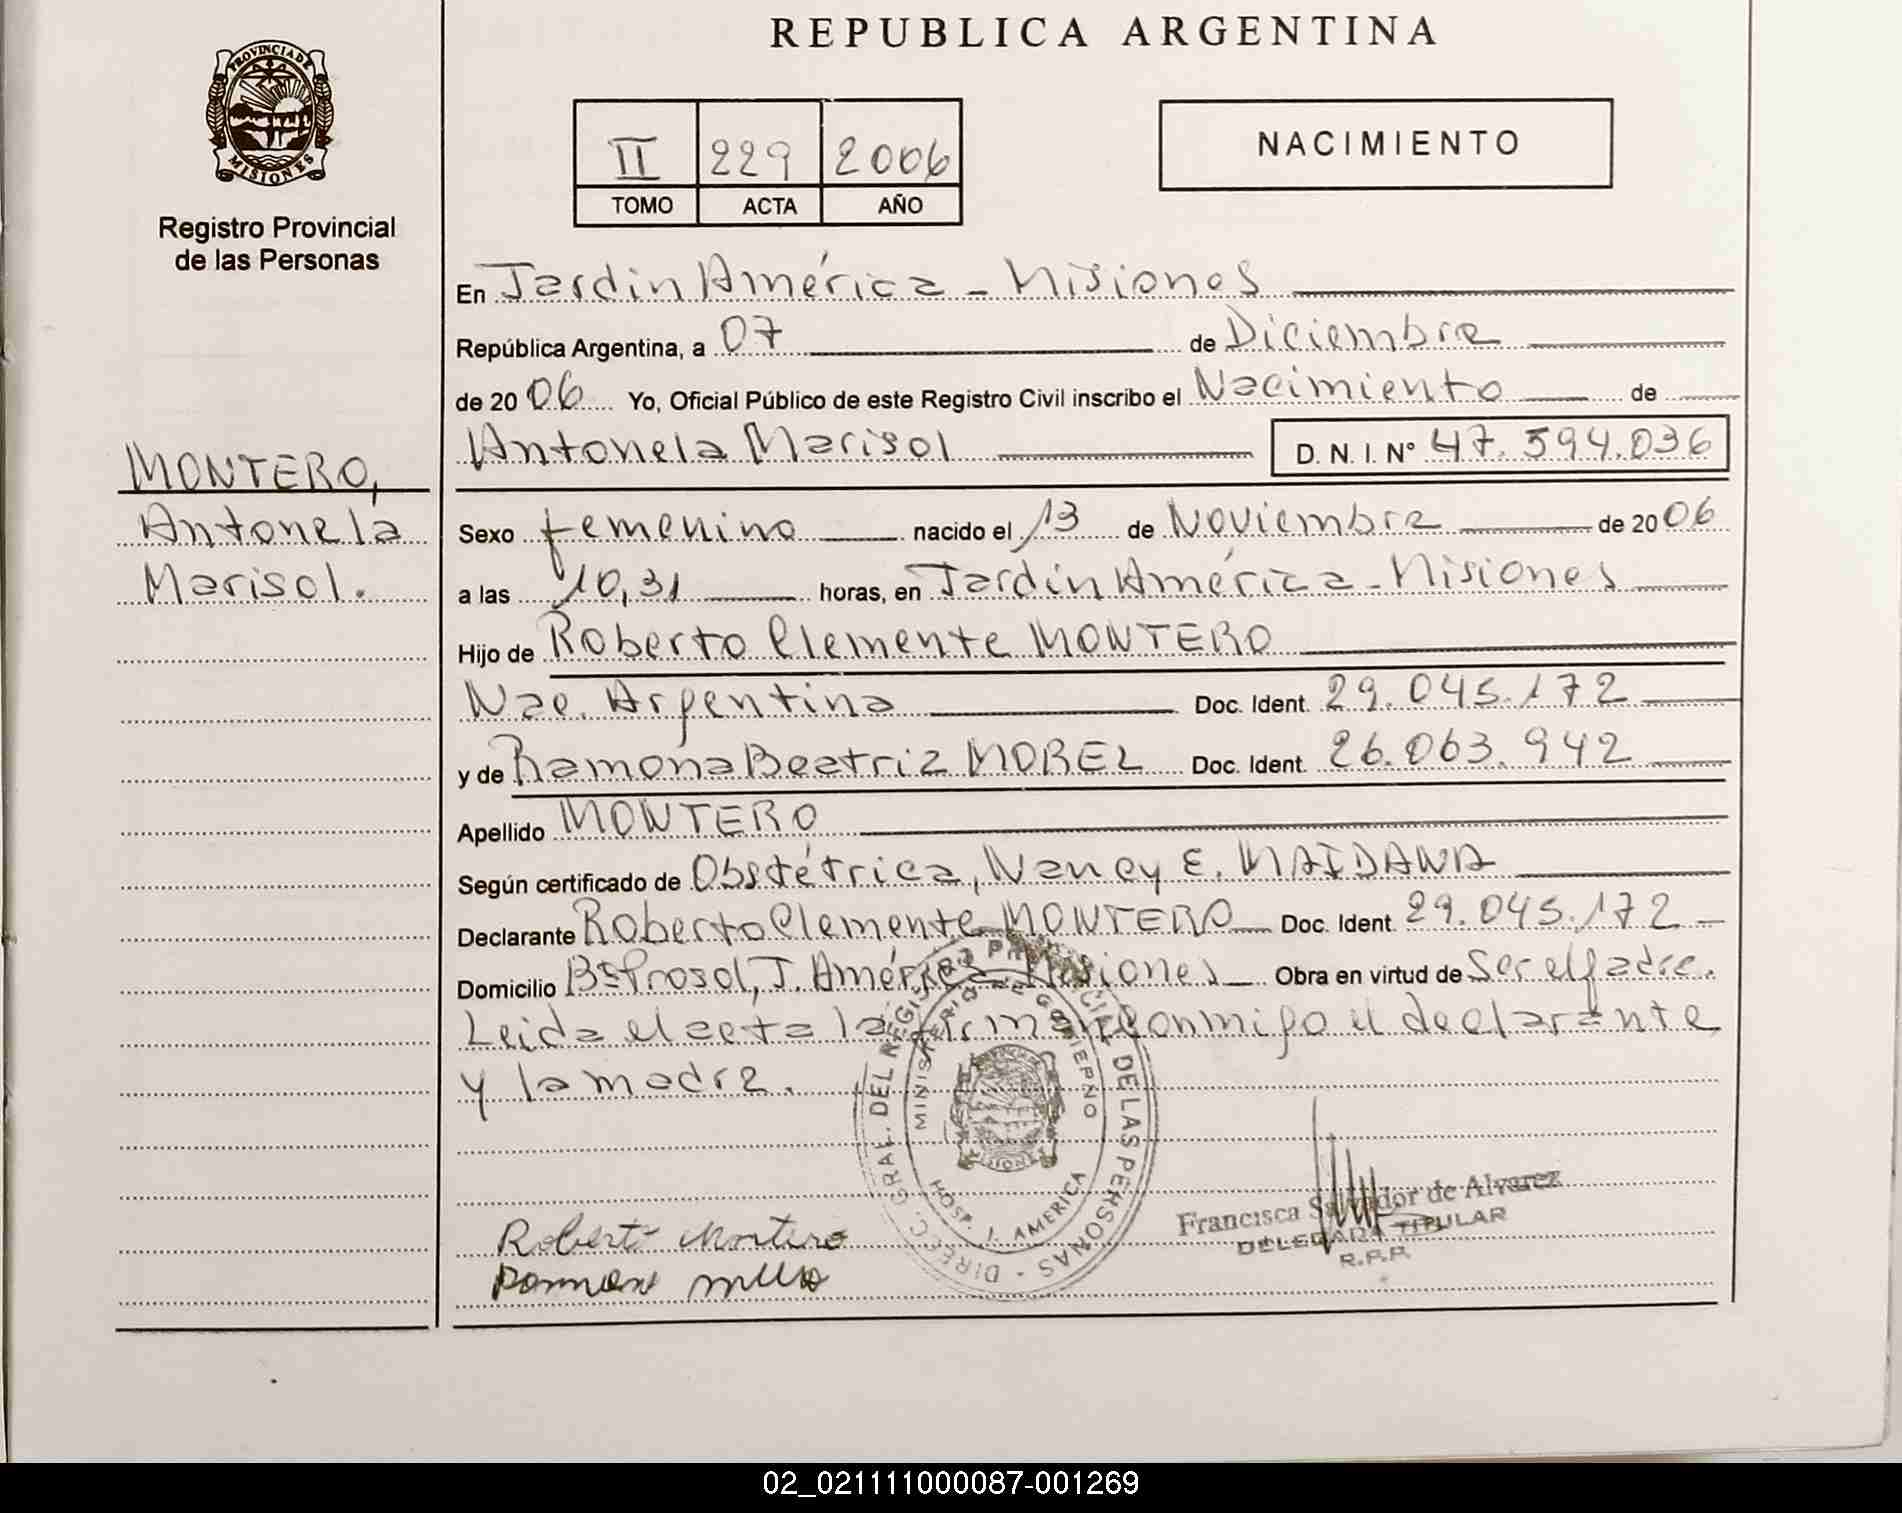 REPUBLICA ARGENTINA
PROVINCIA DE MISIONES
Registro Provincial
de las Personas
II 229 2006
TOMO ACTA AÑO
NACIMIENTO
MONTERO,
Antonela
Marisol.
En Jardin América - Misiones
República Argentina, a 07 de Diciembre
de 2006 Yo, Oficial Público de este Registro Civil inscribo el Nacimiento de
Antonela Marisol D. N. I. N° 47.594.036
Sexo femenino nacido el 13 de Noviembre de 2006
a las 10,31 horas, en Jardín América - Misiones
Hijo de Roberto Clemente MONTERO
Nac. Argentina Doc. Ident. 29.045.172
y de Ramona Beatriz MOREL Doc. Ident. 26.063.942
Apellido MONTERO
Según certificado de Obstétrica, Nancy E. MAIDANA
Declarante Roberto Clemente MONTERO Doc. Ident. 29.045.172
Domicilio B° Prosol, J. América - Misiones Obra en virtud de Ser el padre.
Leida el acta la firman conmigo el declarante
y la madre.
DIRECC. GRAL. DEL REGISTRO PROVINCIAL DE LAS PERSONAS
MINISTERIO DE GOBIERNO
MISIONES
HOSP. J. AMERICA
Roberto Montero
Francisca Salvador de Alvarez
DELEGADA TITULAR
R.P.P.
02_021111000087-001269